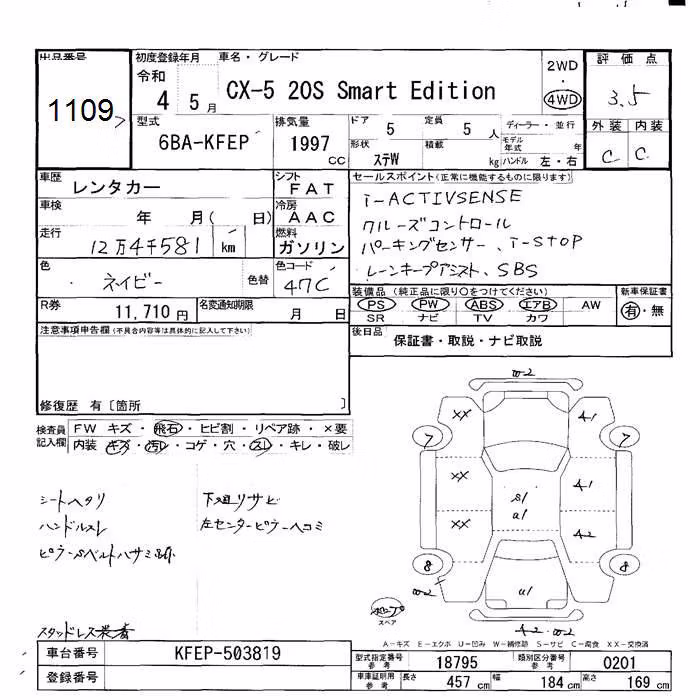 出品番号 1109
初度登録年月 令和 4 5月
車名・グレード CX-5 20S Smart Edition
2WD・4WD
評価点 3.5
外装 C 内装 C
型式 6BA-KFEP
排気量 1997 CC
ドア 5 定員 5人 ディーラー・並行
形状 ステW 積載 kg モデル年式 年 ハンドル 左・右
車歴 レンタカー
シフト FAT
車検 年 月( 日)
冷房 AAC
走行 12万4千581 km
燃料 ガソリン
色 ネイビー 色替
色コード 47C
R券 11,710円 名変通知期限 月 日
セールスポイント(正常に機能するものに限ります)
i-ACTIVSENSE
クルーズコントロール
パーキングセンサー、i-STOP
レーンキープアシスト、SBS
装備品(純正品に限り○をつけてください) 新車保証書
PS PW ABS エアB AW 有・無
SR ナビ TV カワ
後日品 保証書・取説・ナビ取説
注意事項申告欄(不具合内容等は具体的に記入して下さい)
修復歴 有〔箇所 〕
検査員記入欄
FW キズ・飛石・ヒビ割・リペア跡・×要
内装 キズ・汚レ・コゲ・穴・スレ・キレ・破レ
シートヘタリ
ハンドルスレ
下廻リサビ
左センターピラーヘコミ
スタッドレス装着
W2
XX A1
7 7
XX A1
S1
A1
XX A2
8 8
W2 U1
A2 W2
スペア
A-キズ E-エクボ U-凹み W-補修跡 S-サビ C-腐食 XX-交換済
車台番号 KFEP-503819
登録番号
型式指定番号参考 18795 類別区分番号参考 0201
車庫証明用参考 長さ 457cm 幅 184cm 高さ 169cm